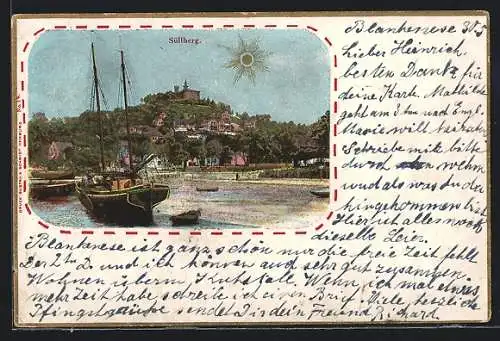 Süllberg.
Blankenese 30.5
Lieber Heinrich,
besten Dank für
deine Karte. Mathilde
geht am 3 ten nach Engl.
Marie will heiraten
Schreibe mir bitte
durch wehm
und als was du da
hingekommen bist
Hier ist alles noch
dieselbe Leier.
Blankenese ist ganz schön nur die freie Zeit fehlt
und ich können auch sehr gut zusammen
Wohnen überm Kuhstall. Wenn ich mal etwas
mehr Zeit habe, schreibe ich einen Brief. Viele herzliche
Pfingstgrüsse sendet Dir dein Freund Richard